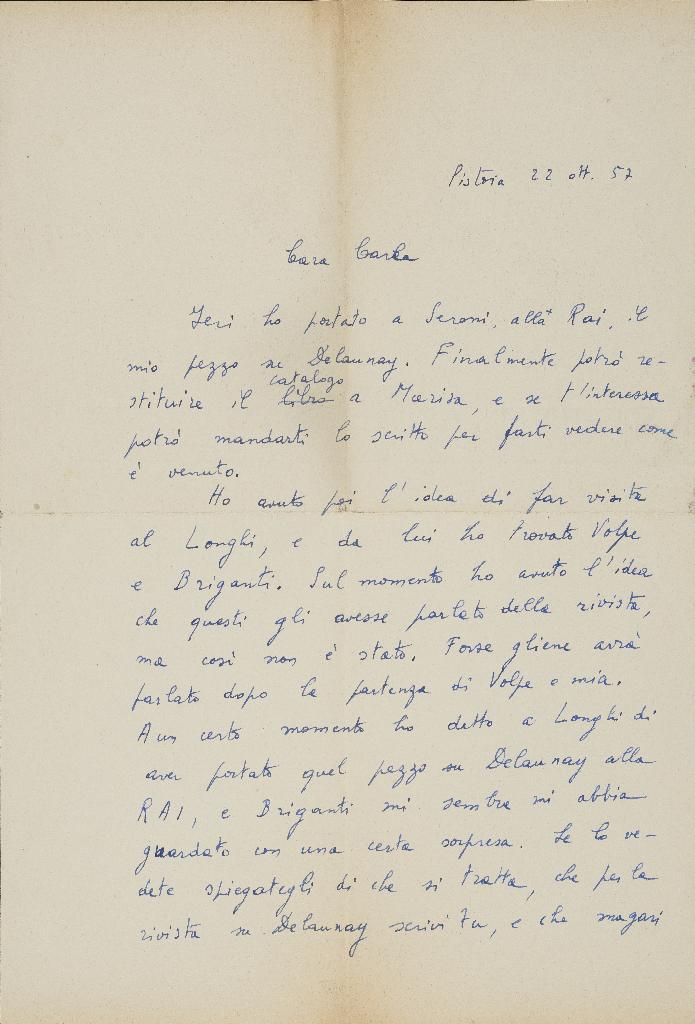 Pistoia 22 ott. 57
Cara Carla
Ieri ho portato a Seroni, alla Rai, il
mio pezzo su Delaunay. Finalmente potrò re-
catalogo
stituire il libro a Marisa, e se t'interessa
potrò mandarti lo scritto per farti vedere come
è venuto.
Ho avuto poi l'idea di far visita
al Longhi, e da lui ho trovato Volpe
e Briganti. Sul momento ho avuto l'idea
che questi gli avesse parlato della rivista,
ma così non è stato. Forse gliene avrà
parlato dopo la partenza di Volpe e mia.
A un certo momento ho detto a Longhi di
aver portato quel pezzo su Delaunay alla
RAI, e Briganti mi sembra mi abbia
guardato con una certa sorpresa. Se lo ve-
dete spiegategli di che si tratta, che per la
rivista su Delaunay scrivi tu, e che magari